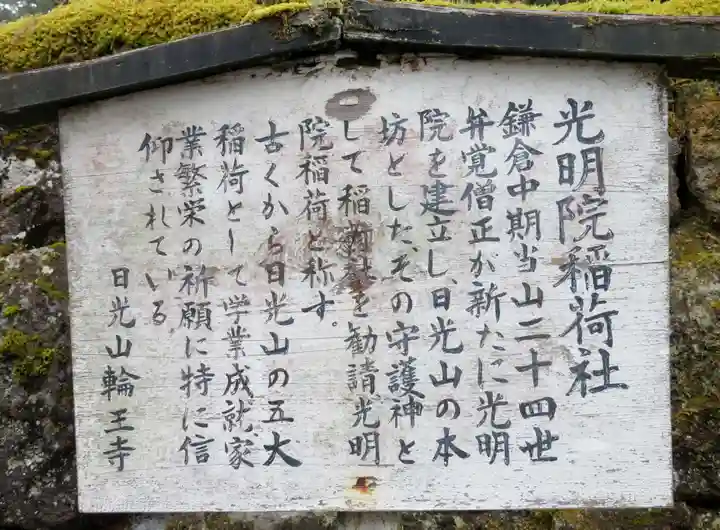 光明院稲荷社
鎌倉中期当山二十四世
弁覚僧正が新たに光明
院を建立し、日光山の本
坊とした。その守護神と
して稲荷社を勧請、光明
院稲荷と称す。
古くから日光山の五大
稲荷として学業成就、家
業繁栄の祈願に特に信
仰されている。
日光山輪王寺